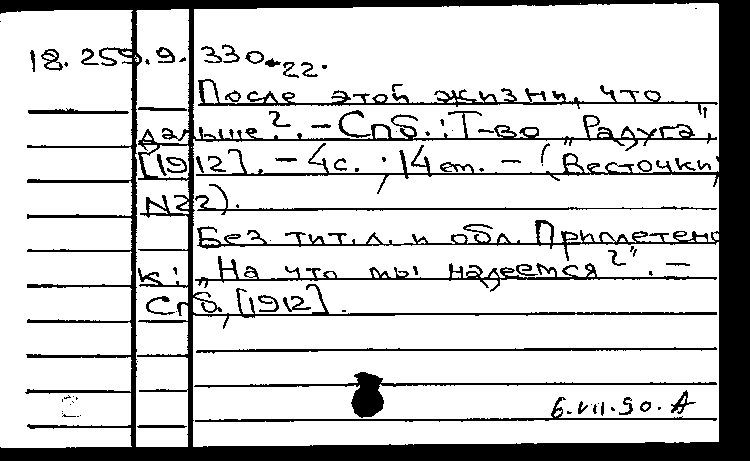 18.259.9.330-22.
После этой жизни, что
дальше?. – Спб.: Т-во „Радуга",
[1912]. – 4с.; 14 см. – (Весточки;
N22).
Без тит.л. и обл. Приплетено
к: „На что мы надеемся?". –
Спб., [1912].
6.VII.90. A